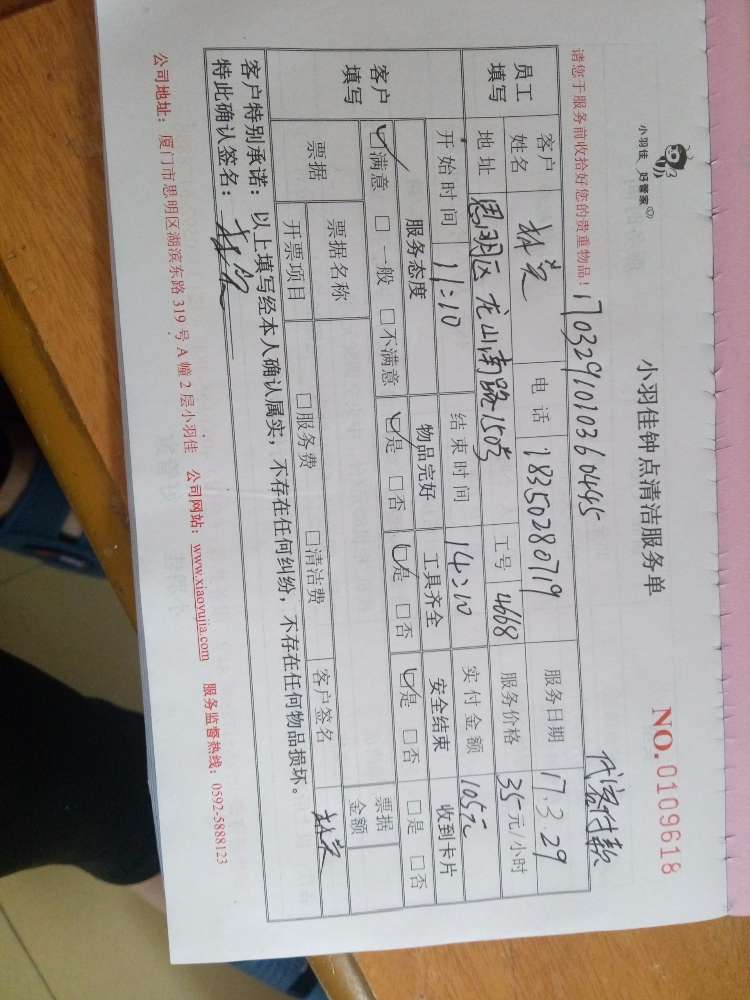 小羽佳 好管家
小羽佳钟点清洁服务单
NO.0109618
请您于服务前收拾好您的贵重物品！
1703291010360445
代客付款
员工填写
客户姓名 电话 18350280719 服务日期 17.3.29
地址 思明区龙山南路150号 工号 4668 服务价格 35元/小时
开始时间 11:10 结束时间 14:10 实付金额 105元
客户填写
服务态度 物品完好 工具齐全 安全结束 收到卡片
☑满意 □一般 □不满意 ☑是 □否 ☑是 □否 ☑是 □否 □是 □否
票据 票据名称 票据金额
开票项目 □服务费 □清洁费 客户签名
客户特别承诺：以上填写经本人确认属实，不存在任何纠纷，不存在任何物品损坏。
特此确认签名：
公司地址：厦门市思明区湖滨东路319号A幢2层小羽佳 公司网站：www.xiaoyujia.com 服务监督热线：0592-5888123